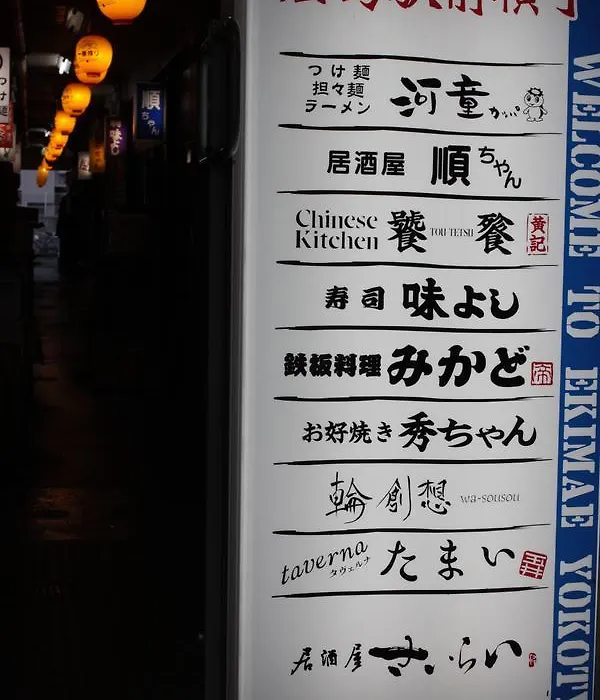 つけ麺
担々麺
ラーメン
河童
居酒屋 順ちゃん
Chinese
Kitchen
饕 TOU TETSU 餮
黄記
寿司 味よし
鉄板料理 みかど
お好焼き 秀ちゃん
輪創想 wa-sousou
taverna
タヴェルナ
たまい
居酒屋 きらい
WELCOME TO EKIMAE YOKOT
順ちゃん